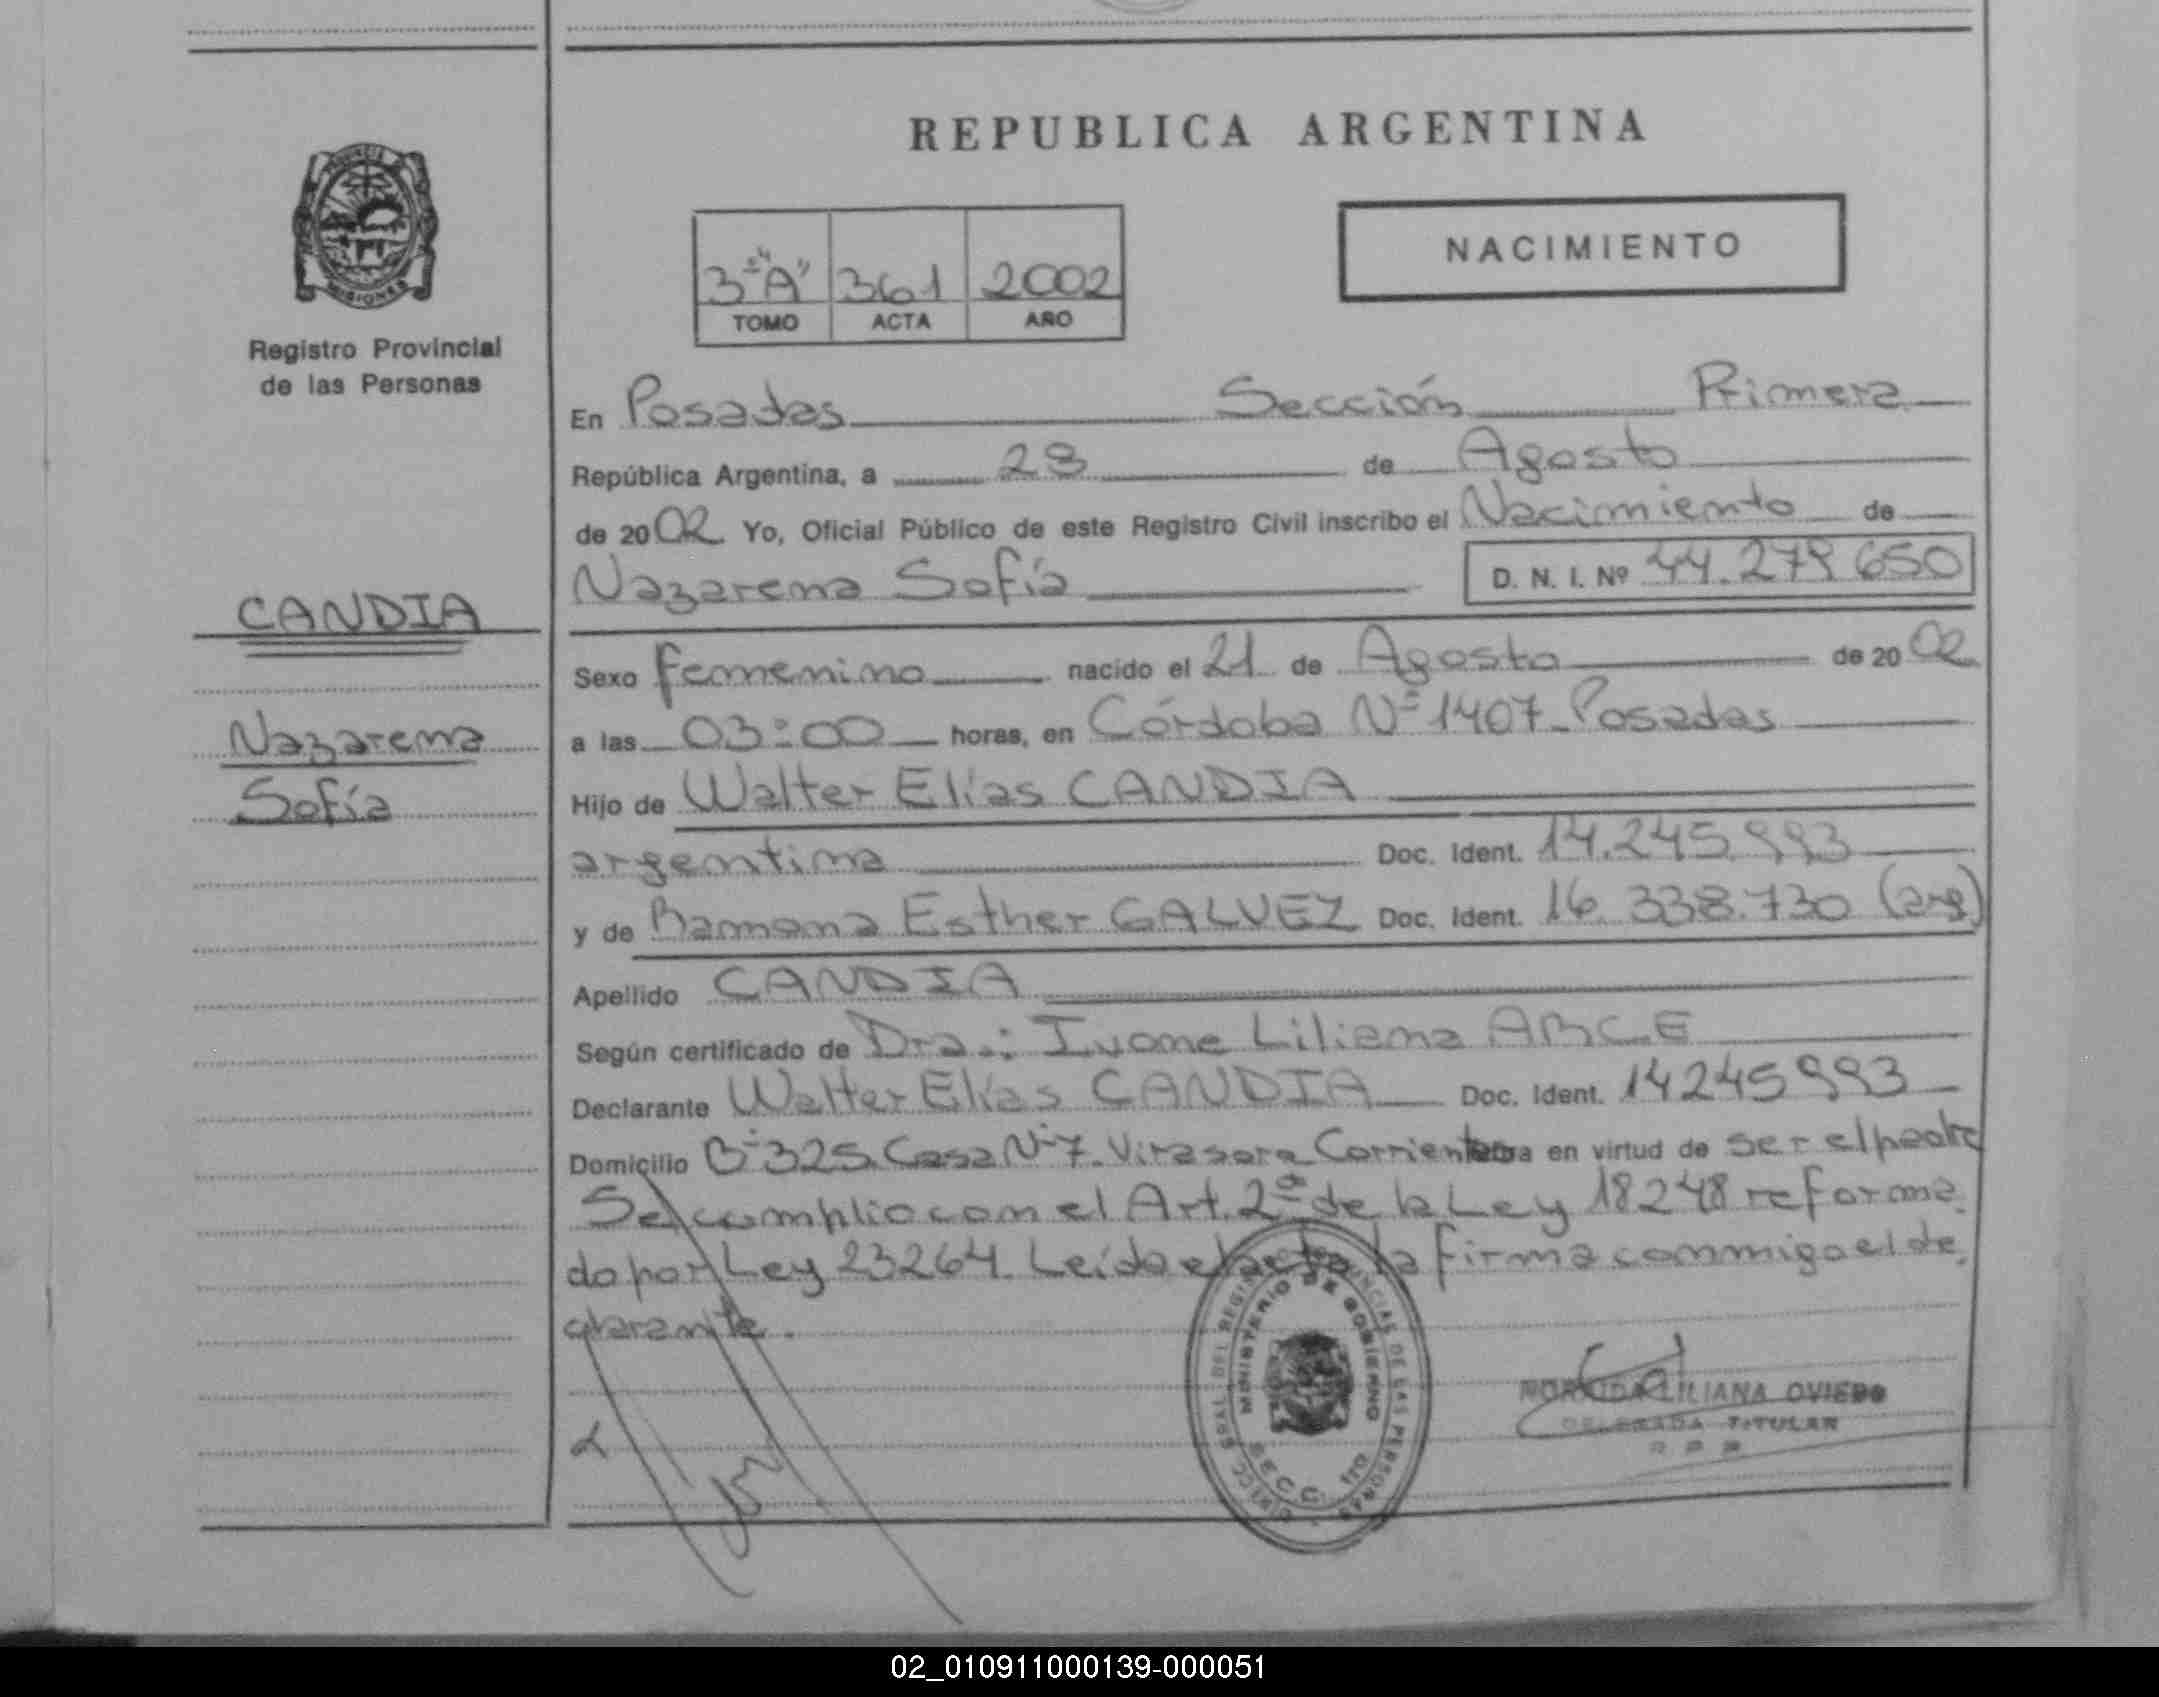 REPUBLICA ARGENTINA
NACIMIENTO
3º "A" 361 2002
TOMO ACTA AÑO
PROVINCIA
MISIONES
Registro Provincial
de las Personas
En Posadas Sección Primera
República Argentina, a 23 de Agosto
de 2002 Yo, Oficial Público de este Registro Civil inscribo el Nacimiento de
Nazarena Sofía D. N. I. Nº 44.279.650
CANDIA
Nazarena
Sofía
Sexo femenino nacido el 21 de Agosto de 2002
a las 03:00 horas, en Córdoba Nº 1407 - Posadas
Hijo de Walter Elías CANDIA
argentina Doc. Ident. 14.245.993
y de Ramona Esther GALVEZ Doc. Ident. 16.338.730 (arg)
Apellido CANDIA
Según certificado de Dra.: Ivone Liliana ARCE
Declarante Walter Elías CANDIA Doc. Ident. 14245993
Domicilio Bº 325 Casa Nº 7 - Virasora Corrientes en virtud de ser el padre
Se cumplio con el Art. 2º de la Ley 18248 reforma
do por Ley 23264. Leída el acta la firma conmigo el de
clarante.
MINISTERIO DE GOBIERNO
SECC. 1ra
LILIANA OVIEDO
DELEGADA TITULAR
02_010911000139-000051